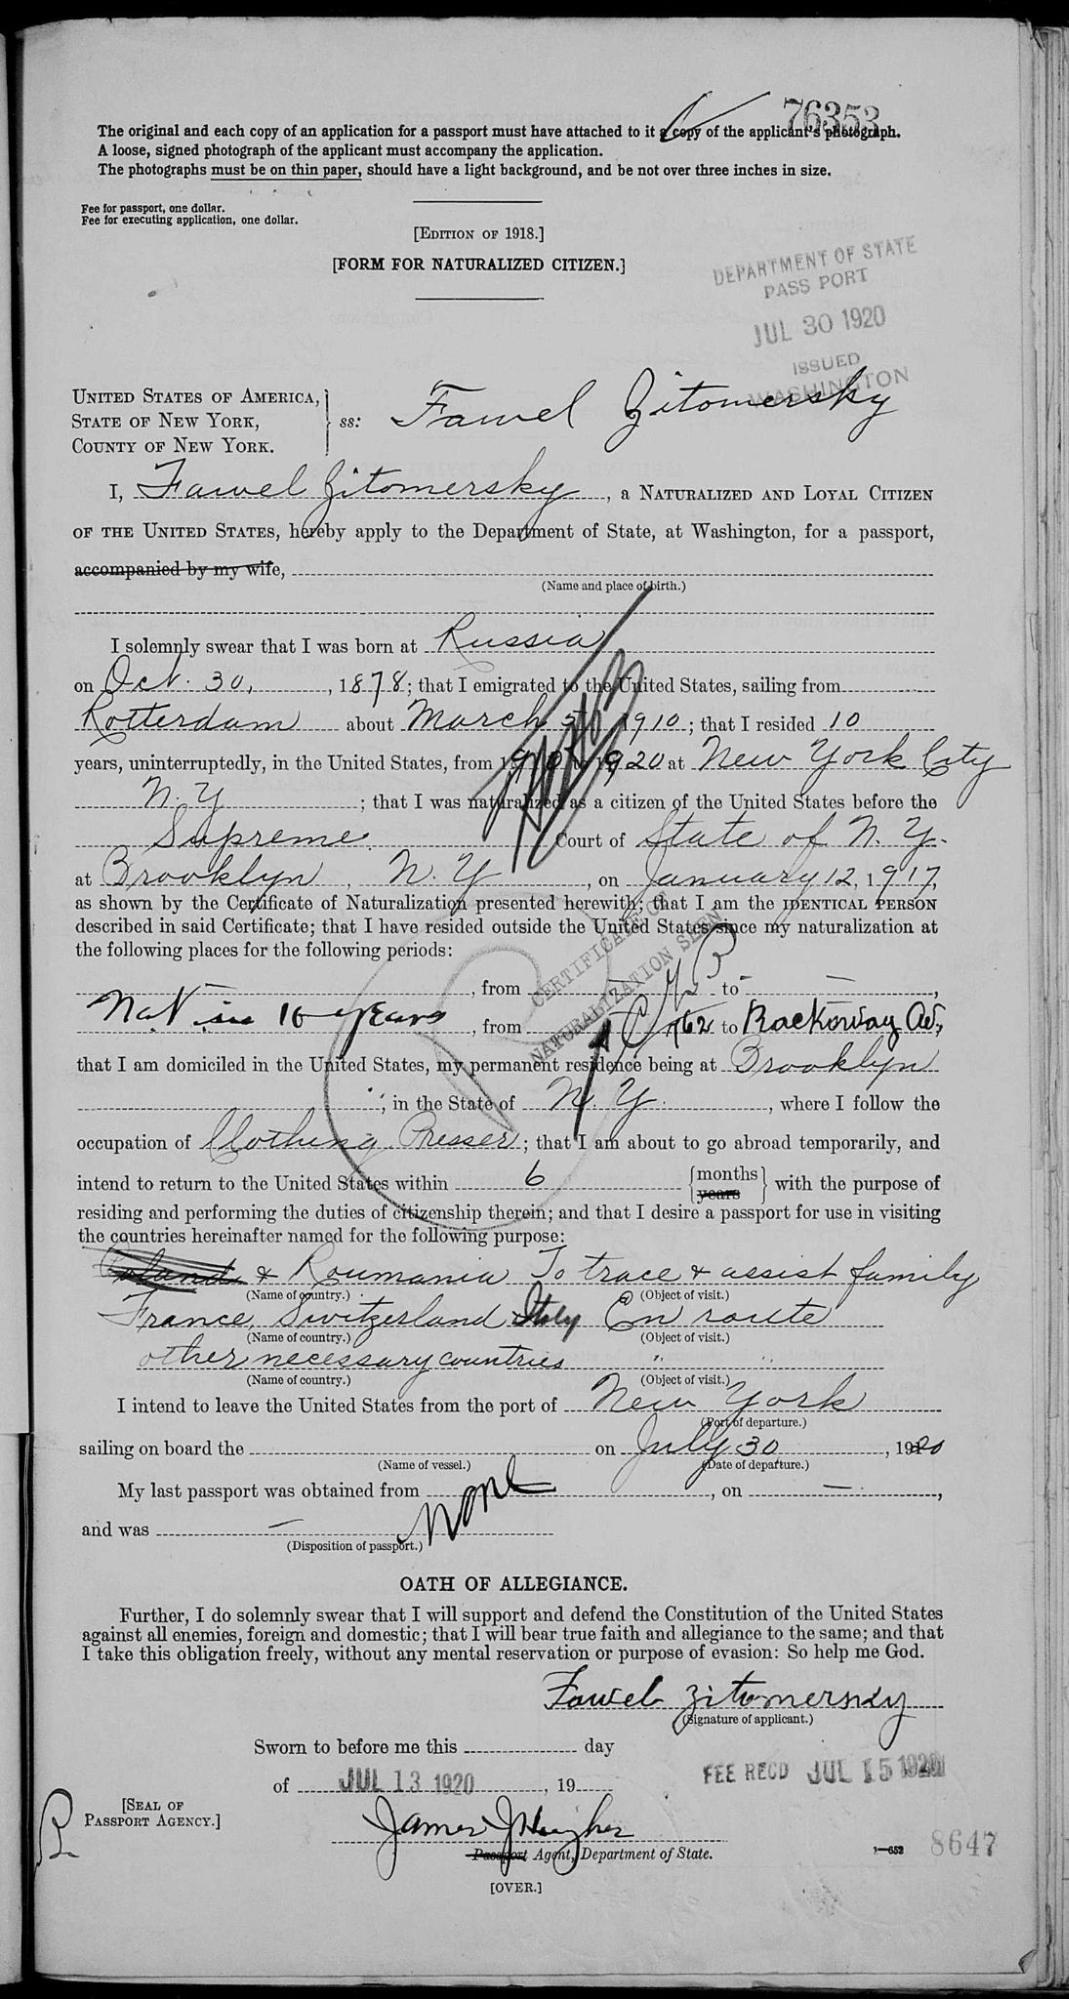 76353
The original and each copy of an application for a passport must have attached to it a copy of the applicant's photograph.
A loose, signed photograph of the applicant must accompany the application.
The photographs must be on thin paper, should have a light background, and be not over three inches in size.
Fee for passport, one dollar.
Fee for executing application, one dollar.
[EDITION OF 1918.]
[FORM FOR NATURALIZED CITIZEN.]
DEPARTMENT OF STATE
PASS PORT
JUL 30 1920
ISSUED
WASHINGTON
UNITED STATES OF AMERICA,
STATE OF NEW YORK,
COUNTY OF NEW YORK.
ss: Fawel Zitomersky
I, Fawel Zitomersky, a NATURALIZED AND LOYAL CITIZEN
OF THE UNITED STATES, hereby apply to the Department of State, at Washington, for a passport,
accompanied by my wife,
(Name and place of birth.)
I solemnly swear that I was born at Russia
on Oct. 30, , 1878; that I emigrated to the United States, sailing from
Rotterdam about March 5, 1910; that I resided 10
years, uninterruptedly, in the United States, from 1910 to 1920 at New York City
N. Y ; that I was naturalized as a citizen of the United States before the
Supreme Court of State of N. Y.
at Brooklyn, N. Y , on January 12, 1917,
as shown by the Certificate of Naturalization presented herewith; that I am the IDENTICAL PERSON
described in said Certificate; that I have resided outside the United States since my naturalization at
the following places for the following periods:
CERTIFICATE OF
NATURALIZATION SEEN
, from — to — ,
Not in 10 years , from 762 to Rackaway Av,
that I am domiciled in the United States, my permanent residence being at Brooklyn
, in the State of N. Y. , where I follow the
occupation of Clothing Presser; that I am about to go abroad temporarily, and
intend to return to the United States within 6 {months years} with the purpose of
residing and performing the duties of citizenship therein; and that I desire a passport for use in visiting
the countries hereinafter named for the following purpose:
Poland & Roumania To trace & assist family
(Name of country.) (Object of visit.)
France, Switzerland Italy En route
(Name of country.) (Object of visit.)
other necessary countries " "
(Name of country.) (Object of visit.)
I intend to leave the United States from the port of New York
(Port of departure.)
sailing on board the on July 30 , 1920
(Name of vessel.) (Date of departure.)
My last passport was obtained from none , on — ,
and was —
(Disposition of passport.)
OATH OF ALLEGIANCE.
Further, I do solemnly swear that I will support and defend the Constitution of the United States
against all enemies, foreign and domestic; that I will bear true faith and allegiance to the same; and that
I take this obligation freely, without any mental reservation or purpose of evasion: So help me God.
Fawel Zitomersky
(Signature of applicant.)
Sworn to before me this day
of JUL 13 1920 , 19
FEE RECD JUL 15 1920
[SEAL OF
PASSPORT AGENCY.]
James J
Passport Agent, Department of State.
1—652 8647
[OVER.]